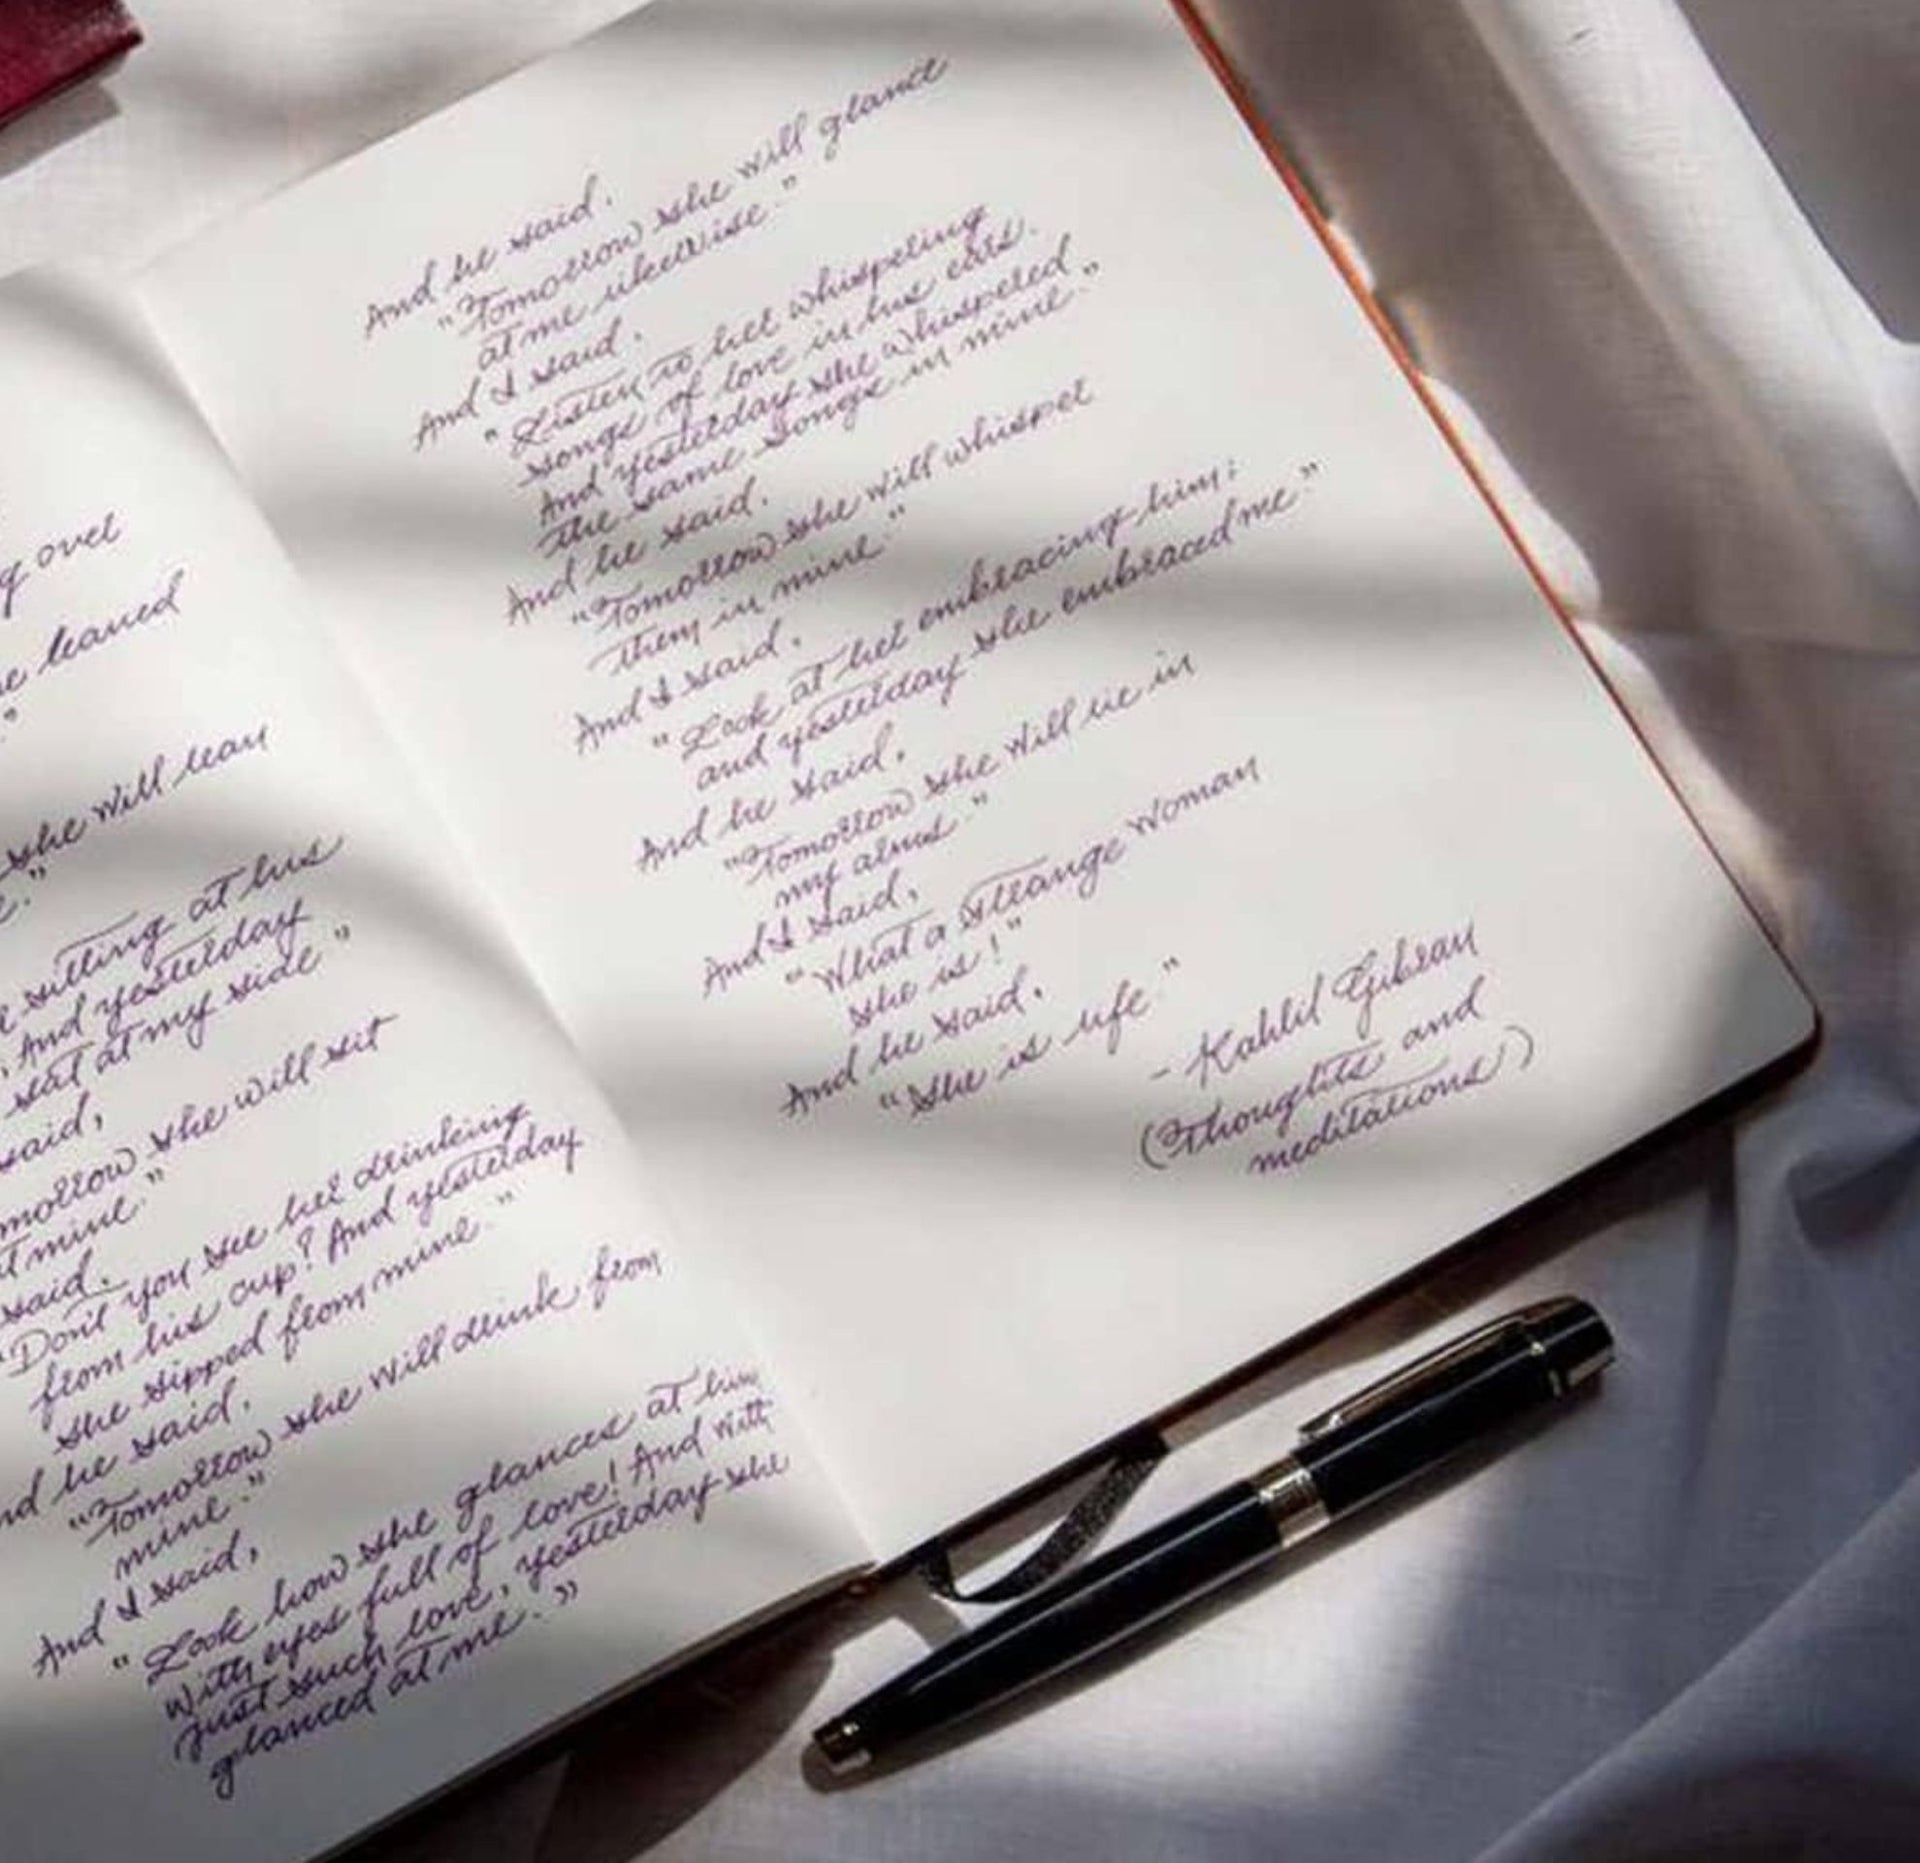 g over
leaned
she will lean
sitting at his
And yesterday
sat at my side"
said,
she will sit
at mine"
said.
"Don't you see her drinking
from his cup? And yesterday
she sipped from mine."
And he said.
"Tomorrow she will drink from
mine."
And I said,
"Look how she glances at him
with eyes full of love! And with
just such love, yesterday she
glanced at me."
And he said.
"Tomorrow she will glance
at me likewise."
And I said.
"Listen to her whispering
songs of love in his ears.
And yesterday she whispered
the same songs in mine."
And he said.
"Tomorrow she will whisper
them in mine."
And I said.
"Look at her embracing him;
and yesterday she embraced me"
And he said.
"Tomorrow she will lie in
my arms."
And I said,
"What a strange woman
she is!"
And he said.
"She is life"
- Kahlil Gibran
(Thoughts and
meditations)